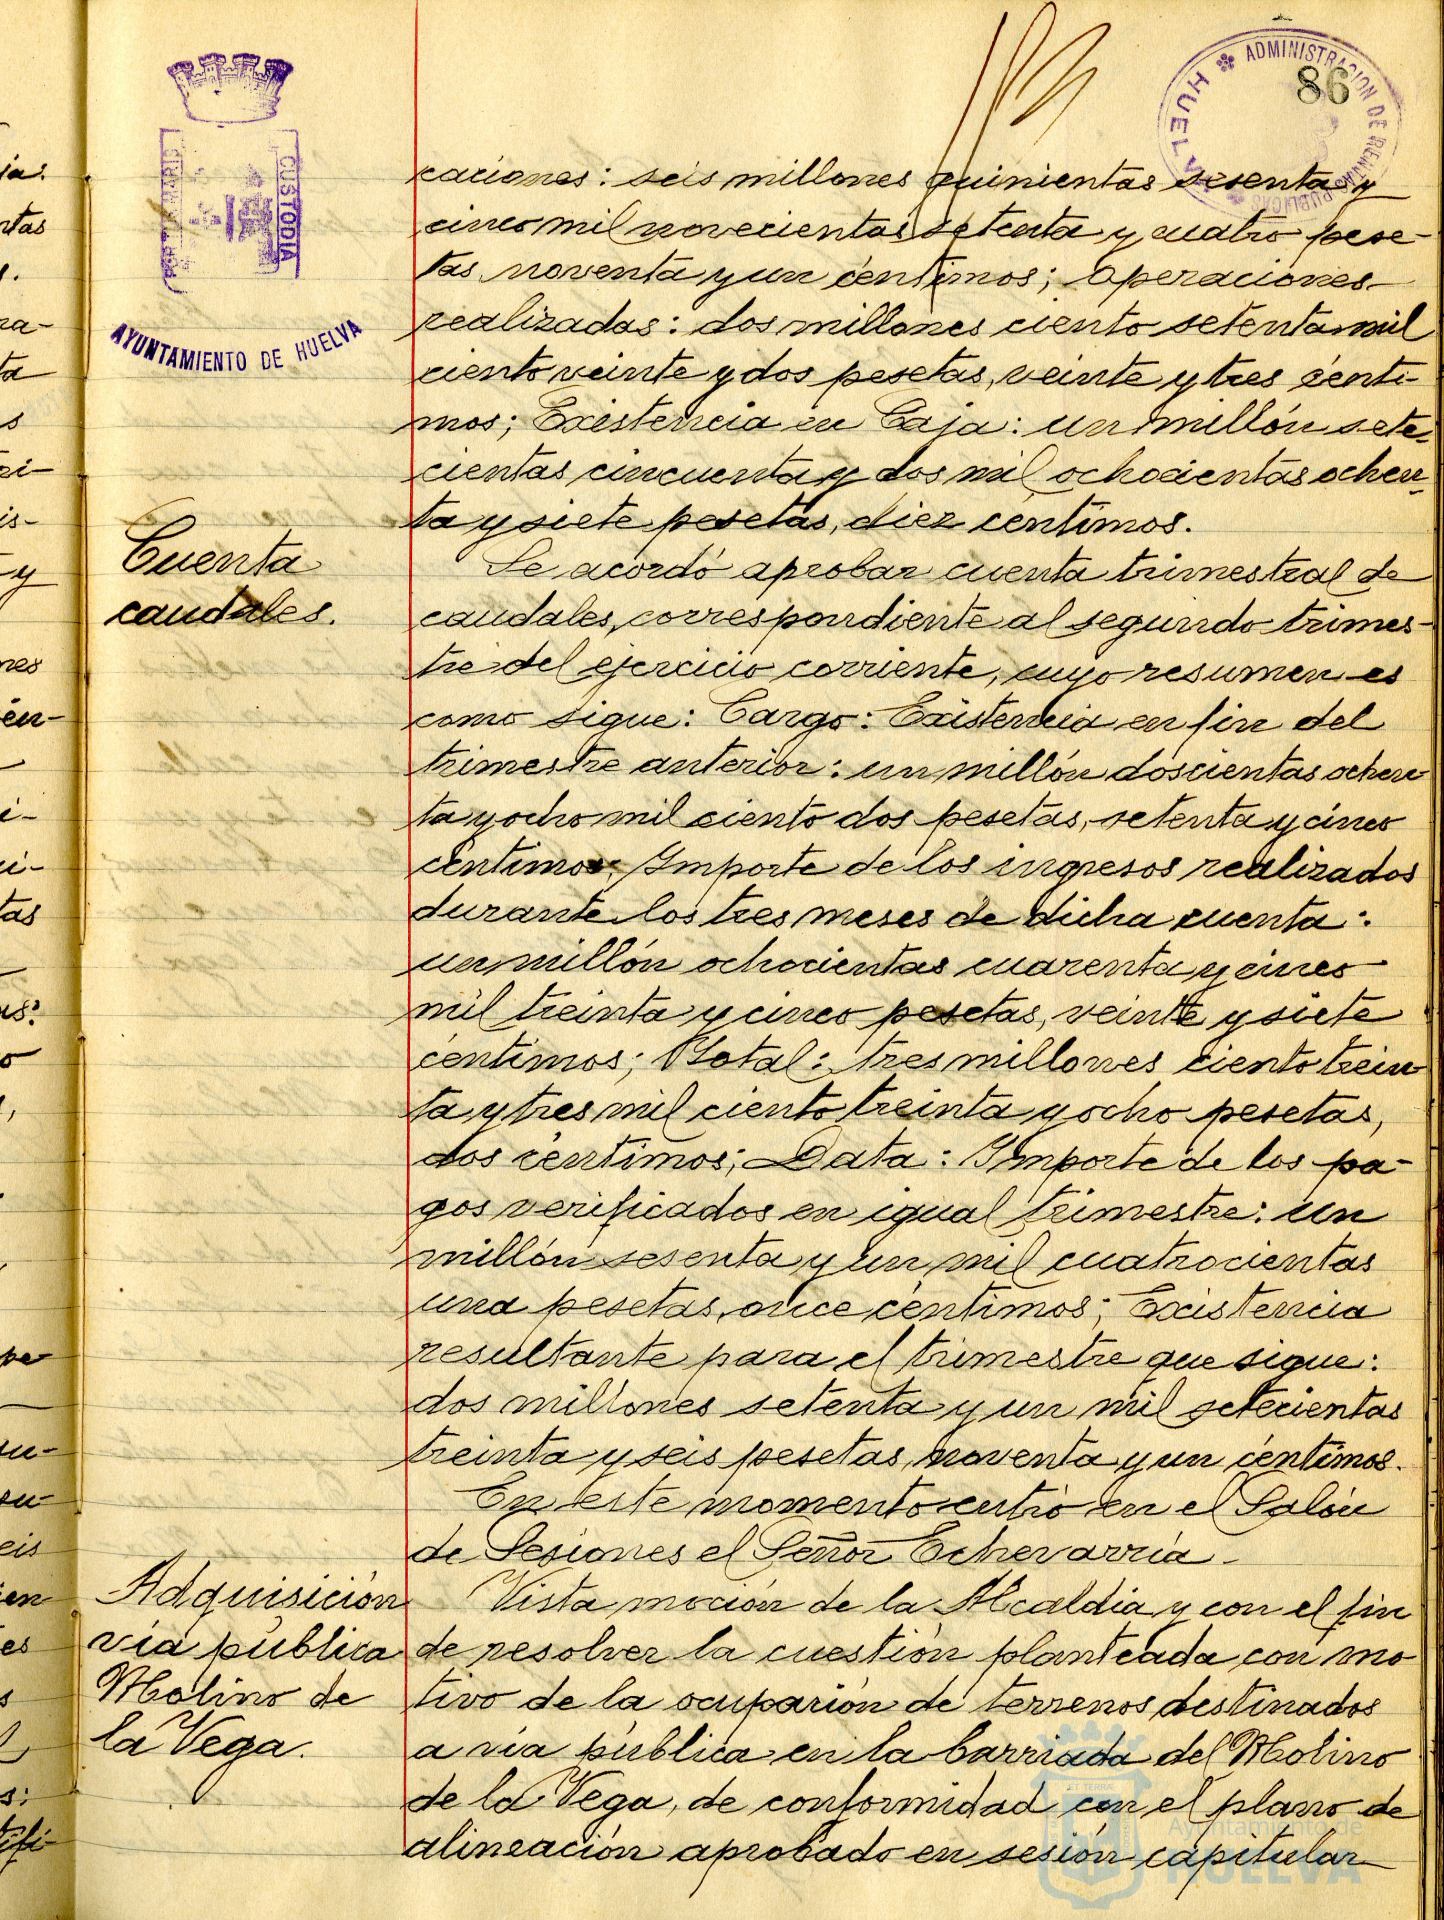 86
ADMINISTRACION DE RENTAS PUBLICAS
HUELVA
PORTUS MARIS
CUSTODIA
AYUNTAMIENTO DE HUELVA
caciones: seis millones quinientas sesenta y
cinco mil novecientas setenta y cuatro pese-
tas noventa y un céntimos; Operaciones
realizadas: dos millones ciento setenta mil
ciento veinte y dos pesetas, veinte y tres cénti-
mos; Existencia en Caja: un millón sete-
cientas cincuenta y dos mil ochocientas ochen-
ta y siete pesetas, diez céntimos.
Cuenta
caudales.
Se acordó aprobar cuenta trimestral de
caudales, correspondiente al segundo trimes-
tre del ejercicio corriente, cuyo resumen es
como sigue: Cargo: Existencia en fin del
trimestre anterior: un millón doscientas ochen-
ta y ocho mil ciento dos pesetas, setenta y cinco
céntimos; Importe de los ingresos realizados
durante los tres meses de dicha cuenta:
un millón ochocientas cuarenta y cinco
mil treinta y cinco pesetas, veinte y siete
céntimos; Total: tres millones ciento trein-
ta y tres mil ciento treinta y ocho pesetas,
dos céntimos; Data: Importe de los pa-
gos verificados en igual trimestre: un
millón sesenta y un mil cuatrocientas
una pesetas, once céntimos; Existencia
resultante para el trimestre que sigue:
dos millones setenta y un mil setecientas
treinta y seis pesetas, noventa y un céntimos.
En este momento entró en el Salón
de Sesiones el Señor Echevarría.-
Adquisición
vía pública
Molino de
la Vega.
Vista moción de la Alcaldía y con el fin
de resolver la cuestión planteada con mo
tivo de la ocupación de terrenos destinados
a vía pública en la barriada del Molino
de la Vega, de conformidad con el plano de
alineación aprobado en sesión capitular
Ayuntamiento de
HUELVA